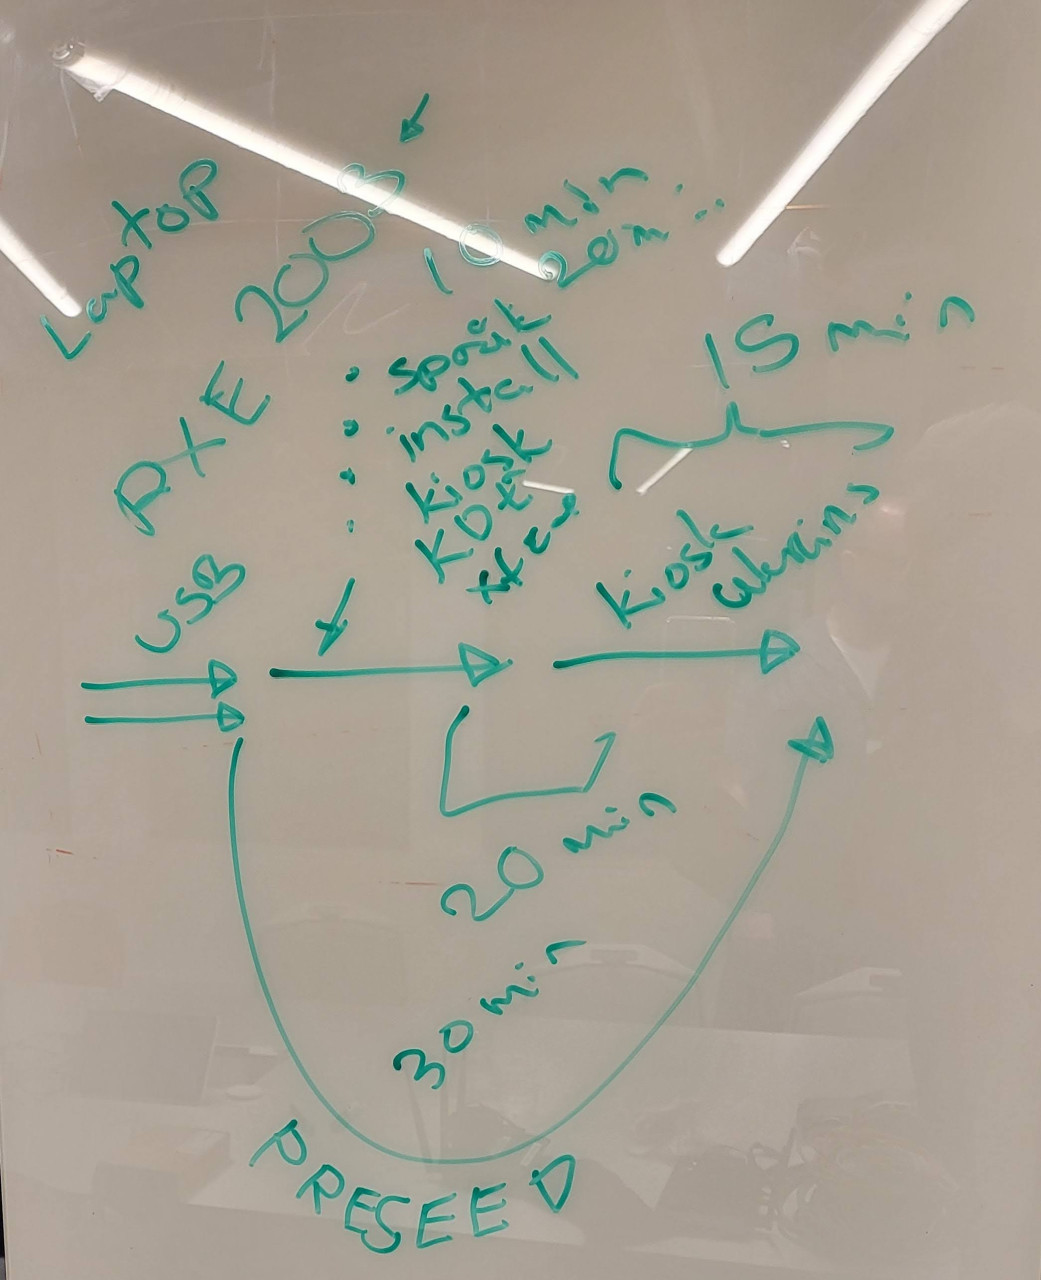 Laptop
PXE 2003
10 min
20 min
• språk
• install
• kiosk
• KDE
15 min
USB
kiosk
20 min
30 min
PRESEED